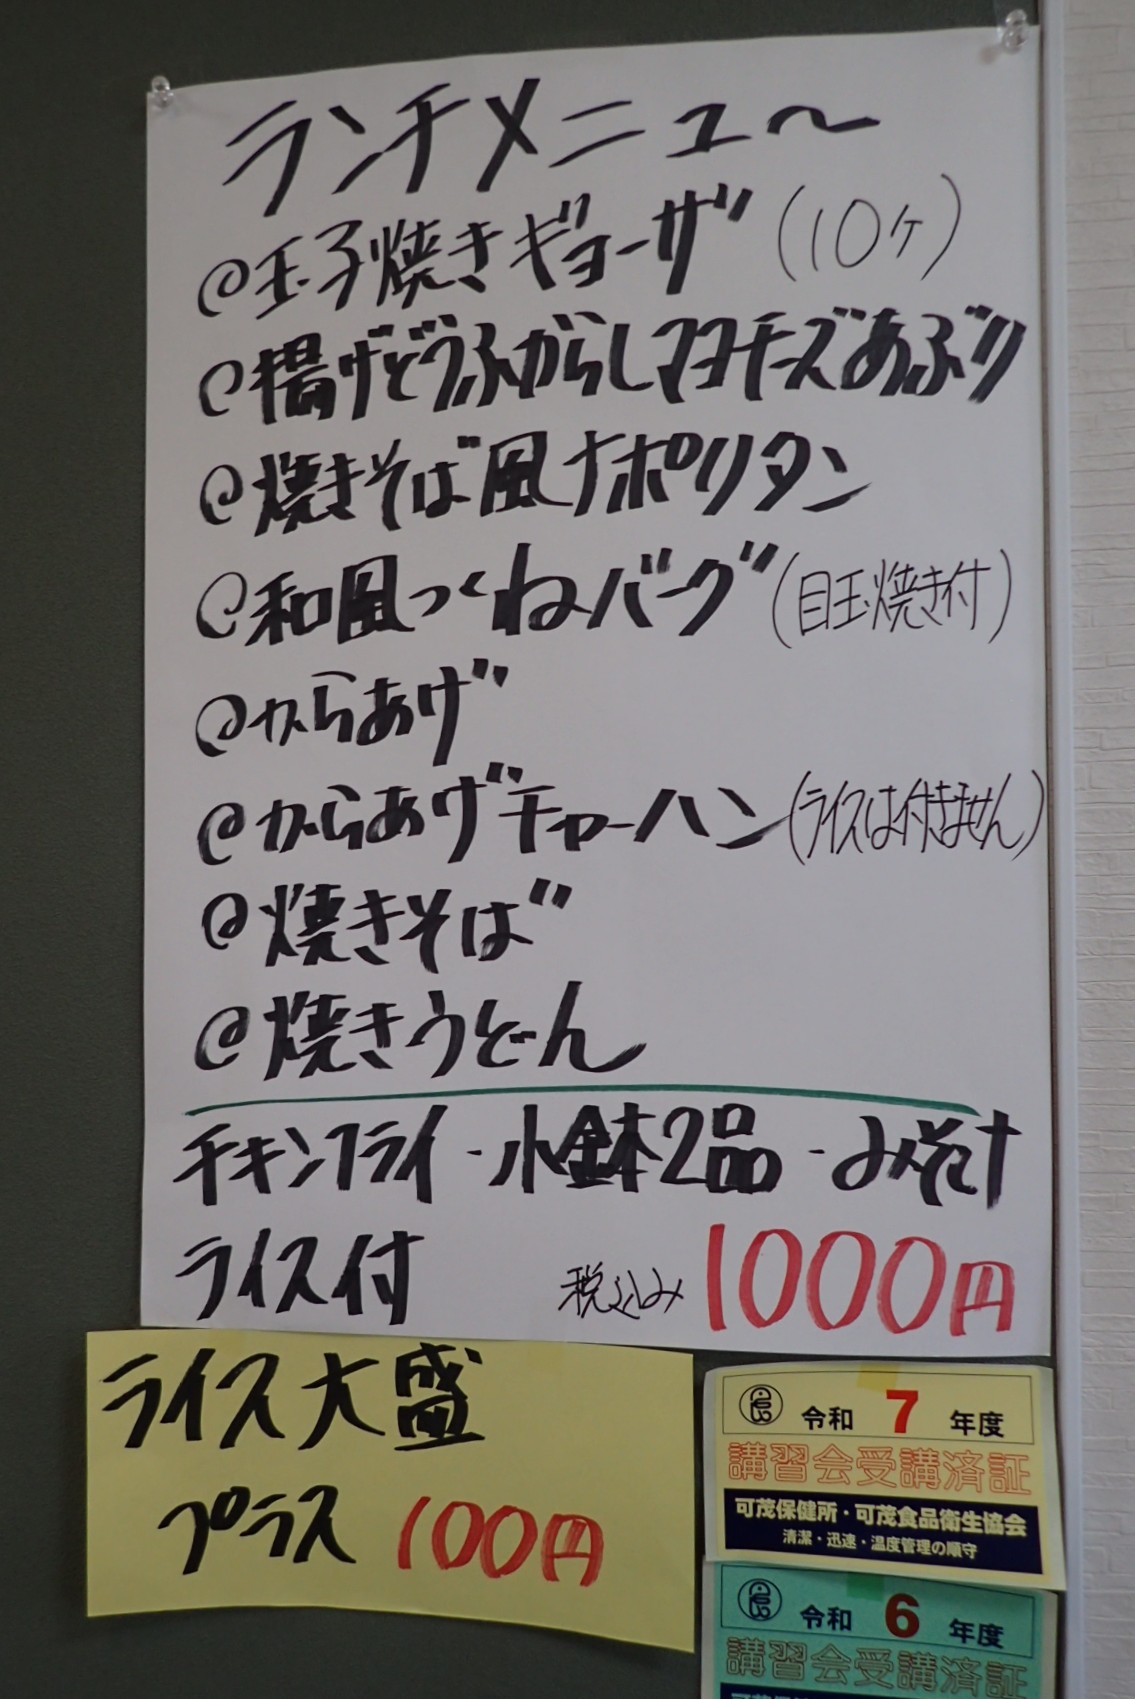 ランチメニュ〜
@玉子焼きギョーザ(10ケ)
@揚げどうふからしマヨチーズあぶり
@焼きそば風ナポリタン
@和風つくねバーグ(目玉焼き付)
@からあげ
@からあげチャーハン(ライスは付きません)
@焼きそば
@焼きうどん
チキンフライ-小鉢2品-みそ汁
ライス付 税込み 1000円
ライス大盛
プラス 100円
令和 7 年度
講習会受講済証
可茂保健所・可茂食品衛生協会
清潔・迅速・温度管理の順守
令和 6 年度
講習会受講済証